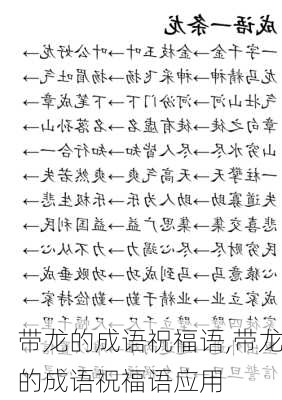 成语一条龙
一字千金→金枝玉叶→叶公好龙→
龙马精神→神采飞扬→扬眉吐气→
气壮山河→河汾门下→下笔成章→
章句之徒→徒有虚名→名落孙山→
山穷水尽→尽人皆知→知行合一→
一柱擎天→天高气爽→爽然若失→
失道寡助→助人为乐→乐极生悲→
悲喜交集→集思广益→益国利民→
民穷财尽→尽心竭力→力不从心→
心猿意马→马到成功→功败垂成→
成家立业→业精于勤→勤俭持家→
家徒四壁→壁立千尺→尺幅千里→
带龙的成语祝福语,带龙
的成语祝福语应用